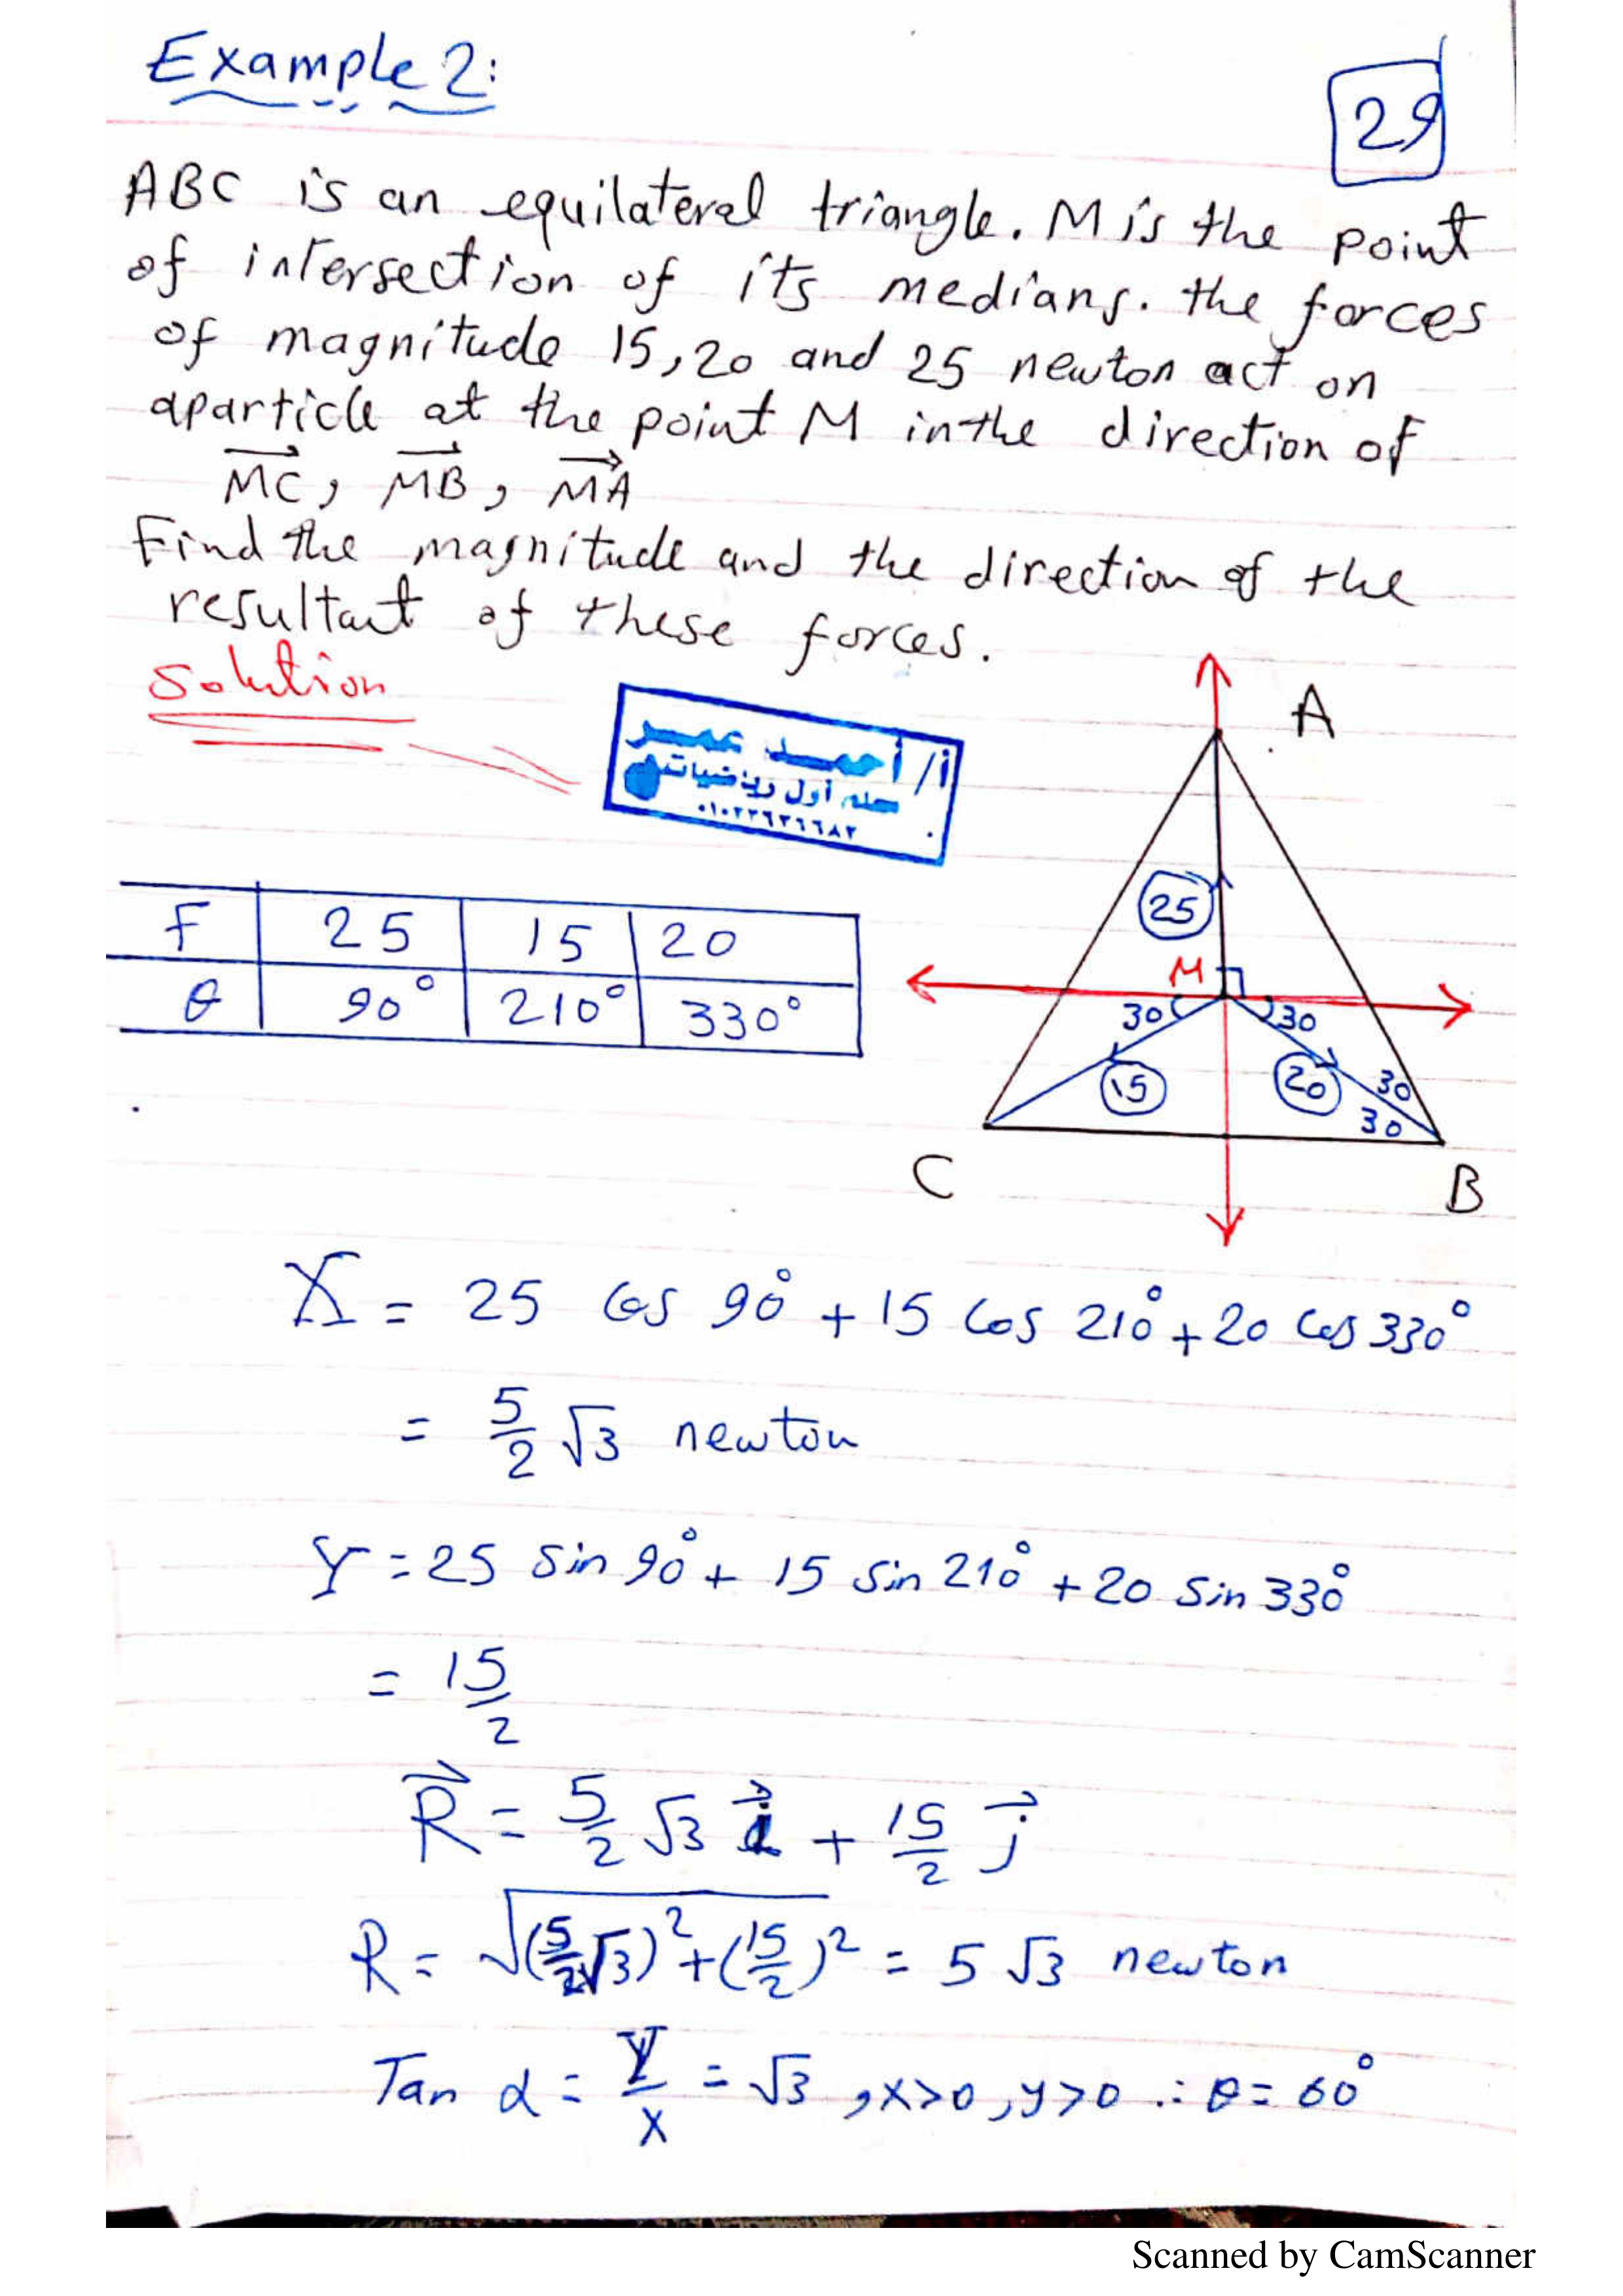 Example 2:
29
ABC is an equilateral triangle. M is the point
of intersection of its medians. the forces
of magnitude 15, 20 and 25 newton act on
aparticle at the point M in the direction of
MC, MB, MA
Find the magnitude and the direction of the
resultant of these forces.
Solution
أ/ أحمد عمر
معلم أول رياضيات
A
F 25 15 20
θ 90° 210° 330°
25
M
30 30
15 20 30
30
C B
X = 25 cos 90° + 15 cos 210° + 20 cos 330°
= 5/2 √3 newton
Y = 25 sin 90° + 15 sin 210° + 20 sin 330°
= 15/2
R⃗ = 5/2 √3 i⃗ + 15/2 j⃗
R = √((5/2 √3)² + (15/2)²) = 5 √3 newton
Tan α = Y/X = √3 , x>0 , y>0 ∴ θ = 60°
Scanned by CamScanner